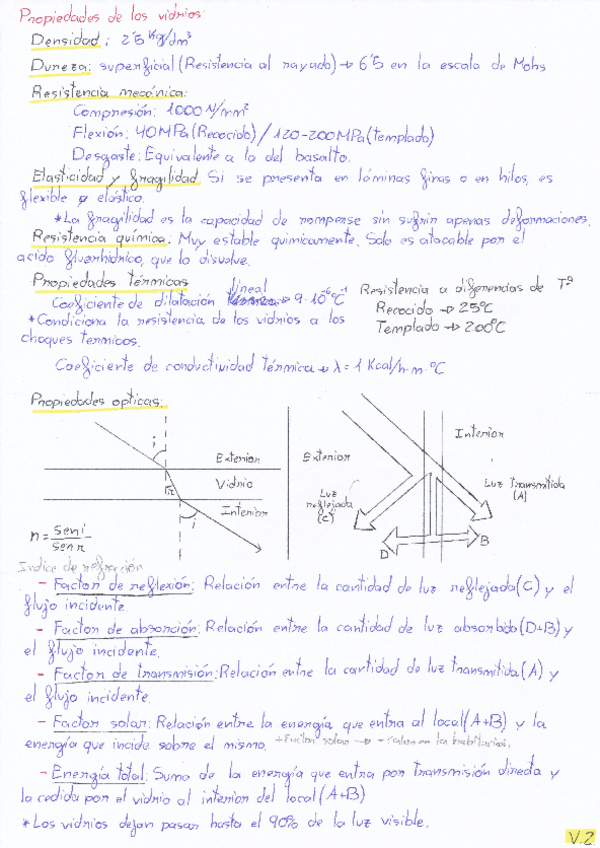 Propiedades de los vidrios:
Densidad: 2'5 Kg/dm³
Dureza: superficial (Resistencia al rayado) → 6'5 en la escala de Mohs
Resistencia mecánica:
Compresión: 1000 N/mm²
Flexión: 40 MPa (Recocido) / 120-200 MPa (templado)
Desgaste: Equivalente a lo del basalto.
Elasticidad y fragilidad Si se presenta en láminas finas o en hilos, es
flexible y elástico.
*La fragilidad es la capacidad de romperse sin sufrir apenas deformaciones.
Resistencia química: Muy estable quimicamente. Solo es atacable por el
acido fluorhidrico, que lo disuelve.
Propiedades térmicas
Coeficiente de dilatación lineal → 9·10⁻⁶ °C⁻¹
*Condiciona la resistencia de los vidrios a los
choques termicos.
Resistencia a diferencias de Tª
Recocido → 25ºC
Templado → 200ºC
Coeficiente de conductividad térmica → λ = 1 Kcal/h·m·ºC
Propiedades opticas:
i
Exterior
Vidrio
r
Interior
i
n = sen i / sen r
Indice de refracción
Exterior
Interior
Luz reflejada (C)
Luz Transmitida (A)
D
B
- Factor de reflexión: Relación entre la cantidad de luz reflejada (C) y el
flujo incidente
- Factor de absorción: Relación entre la cantidad de luz absorbida (D+B) y
el flujo incidente.
- Factor de transmisión: Relación entre la cantidad de luz transmitida (A) y
el flujo incidente.
- Factor solar: Relación entre la energía que entra al local (A+B) y la
energía que incide sobre el mismo. +Factor solar → - calor en la habitación.
- Energía total: Suma de la energía que entra por transmisión directa y
la cedida por el vidrio al interior del local (A+B)
*Los vidrios dejan pasar hasta el 90% de la luz visible.
V.2